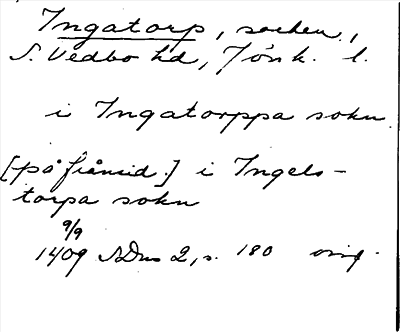 Ingatorp, socken,
S. Vedbo hd, Jönk. l.
i Ingatorppa sokn
[på frånsid.] i Ingels-
torpa sokn
9/9
1409 SDns 2, s. 180 orig.